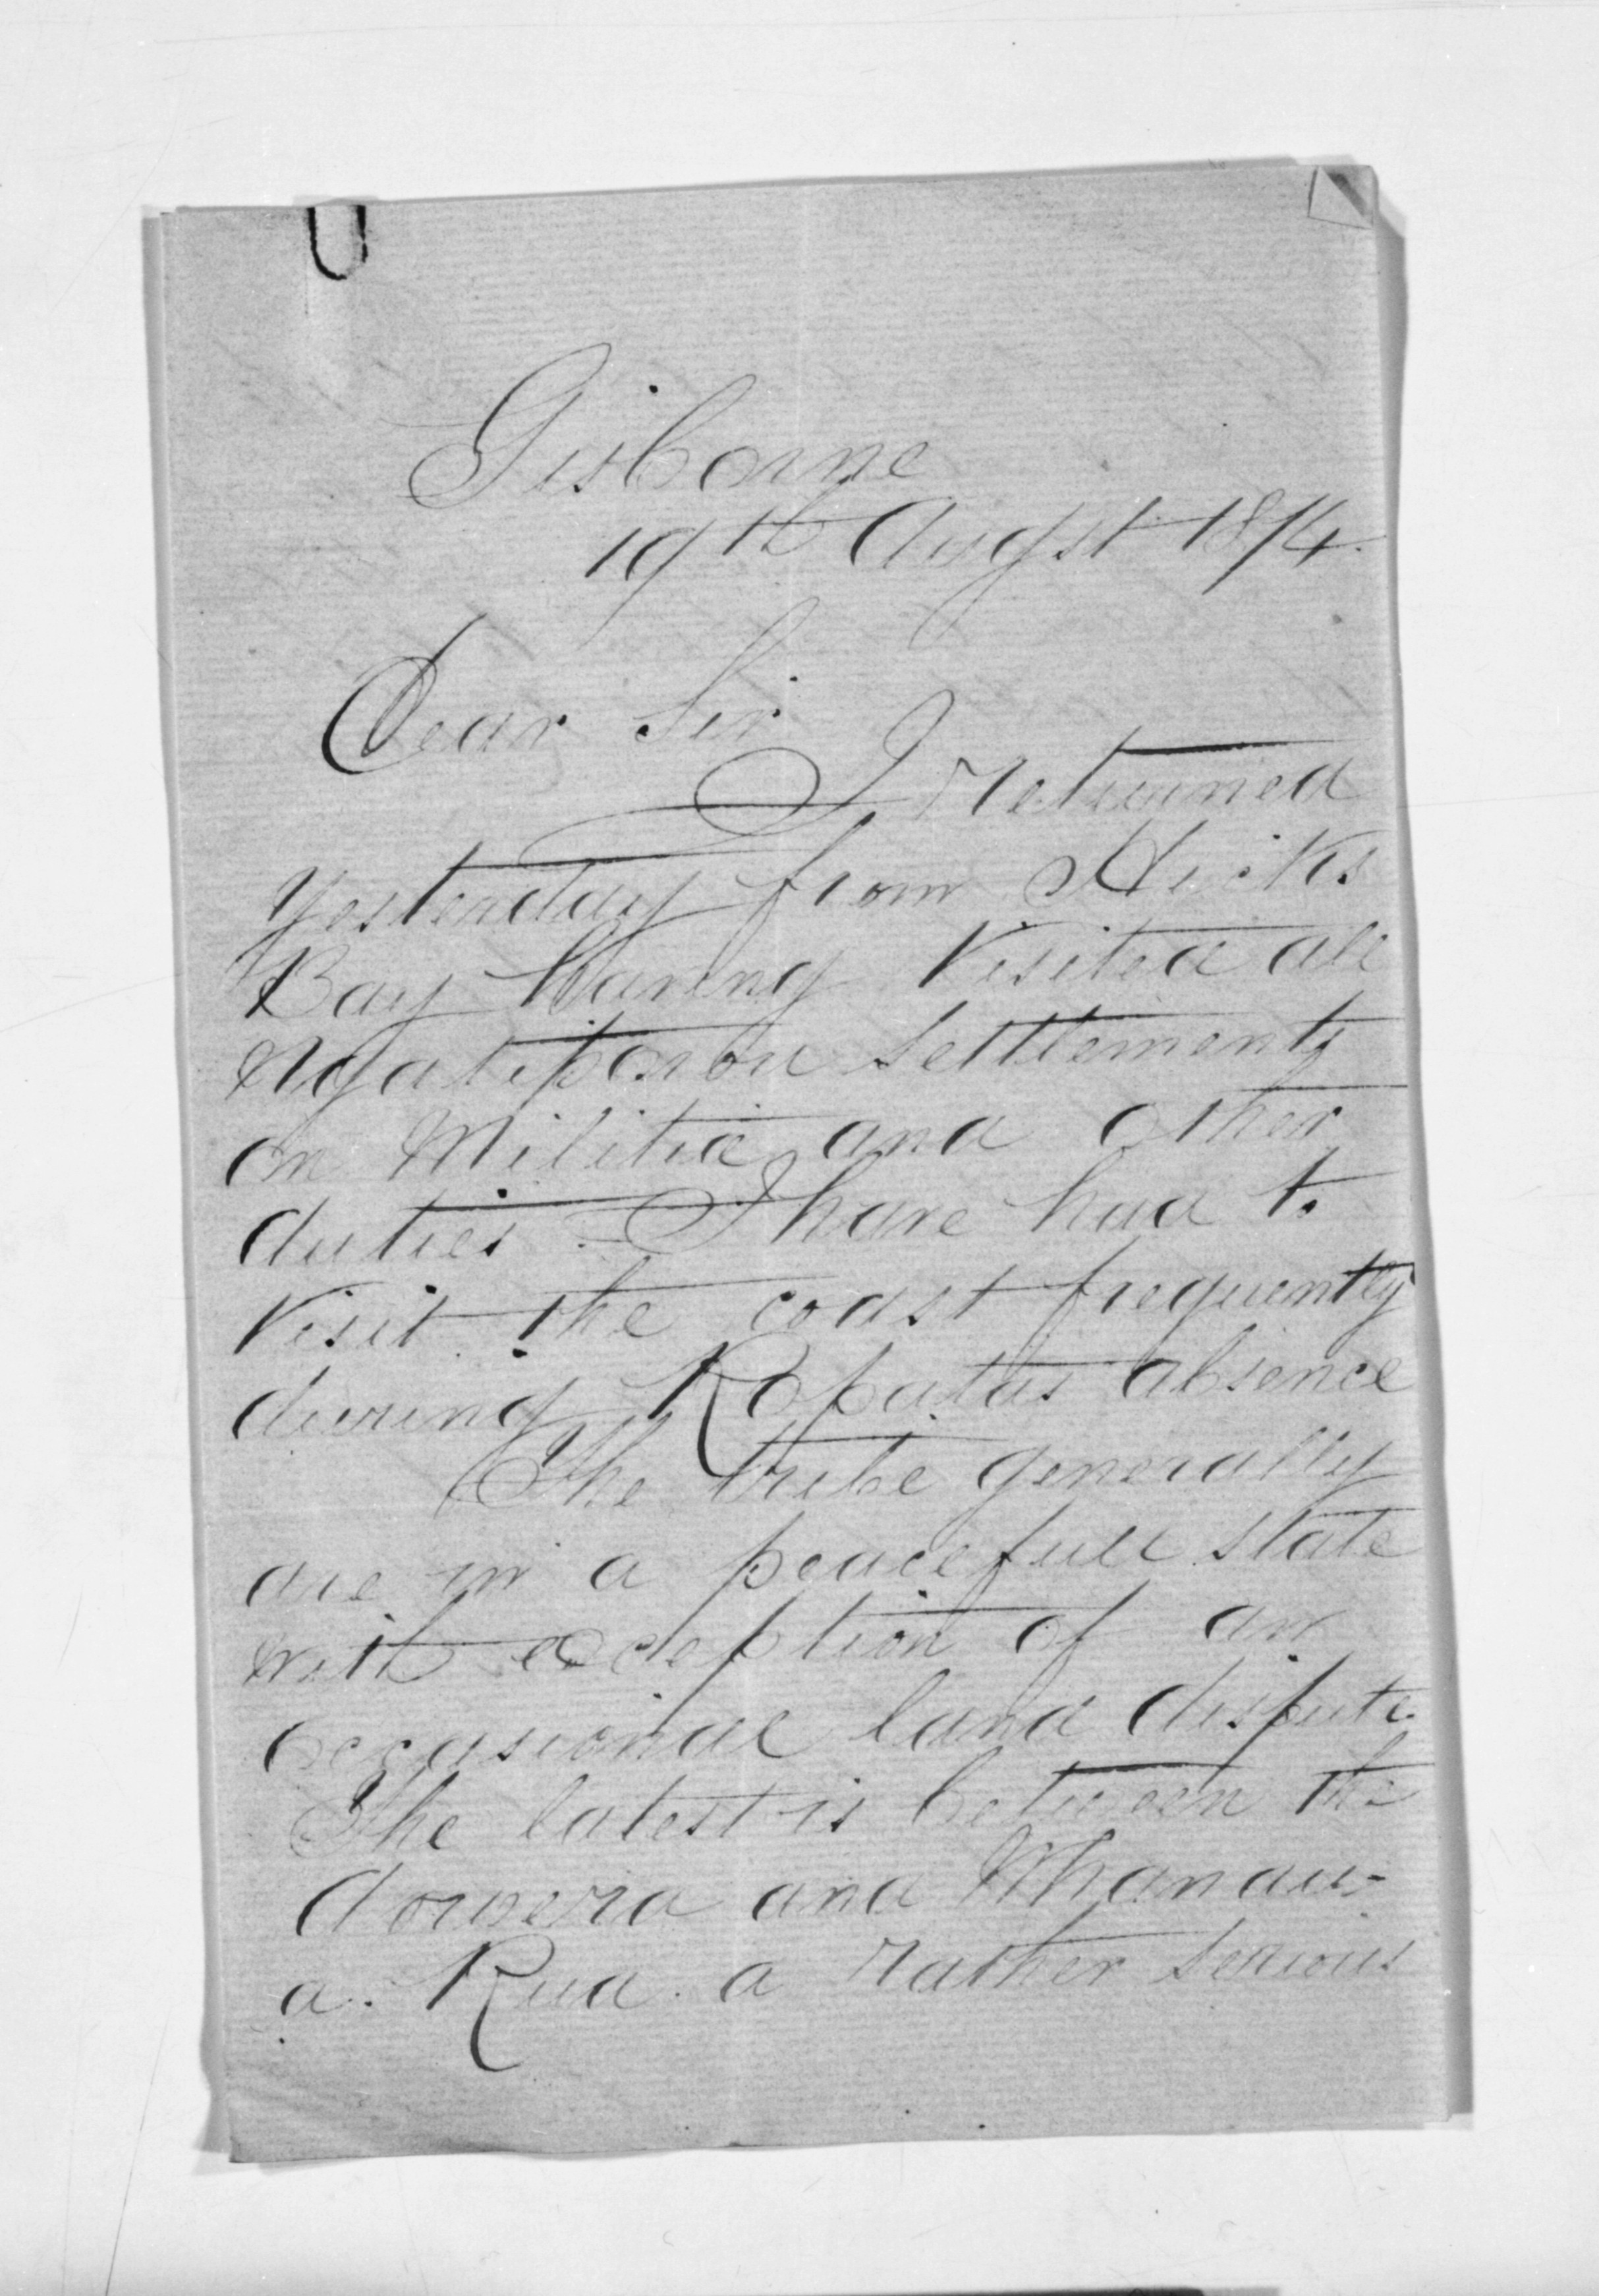 Gisborne
19th Augst 1874.
Dear Sir
I returned
yesterday from Hicks
Bay having visited all
Ngatiporou settlements
on Militia and other
duties. I have had to
visit the coast frequently
during Ropatas absence
The tribe generally
are in a peacefull state
with exception of an
occasional land dispute
The latest is between the
Aowera and Whanau-
a. Rua. a rather serious